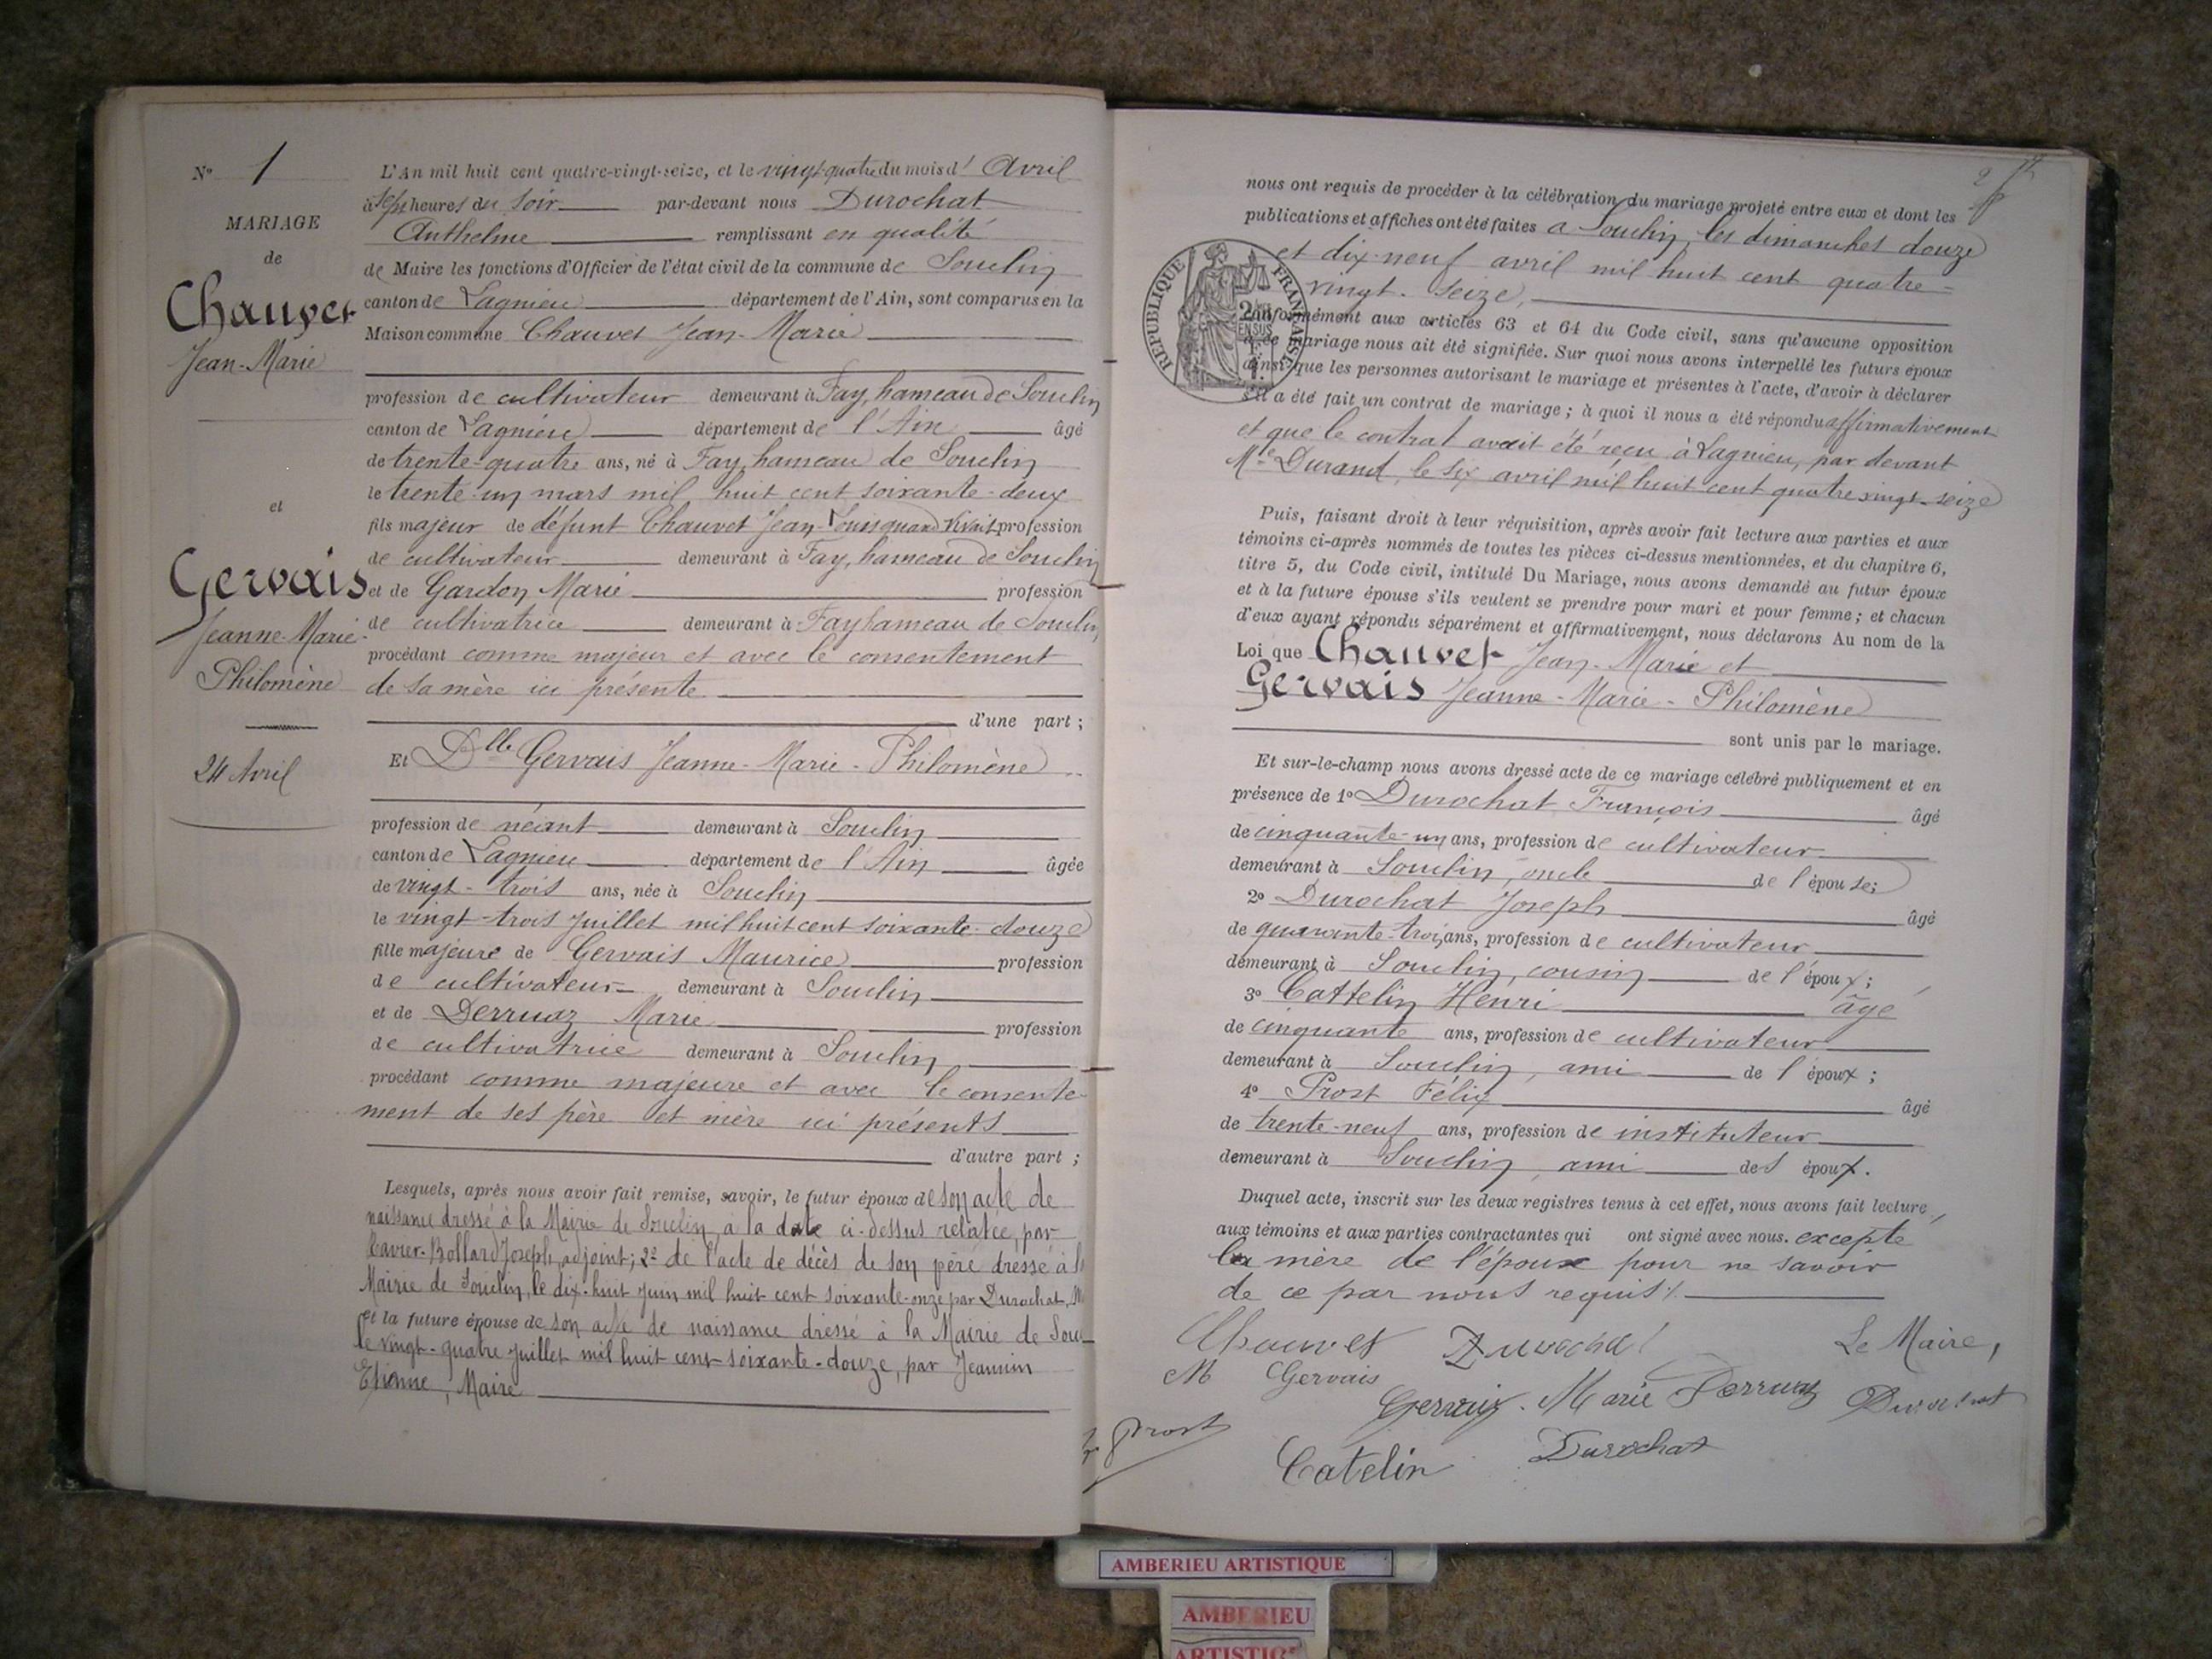 N° 1
MARIAGE
de
Chauvet
Jean-Marie
et
Gervais
Jeanne-Marie-
Philomène
24 Avril
L'An mil huit cent quatre-vingt-seize, et le vingt-quatre du mois d'Avril
à sept heures du soir par-devant nous Durochat
Anthelme remplissant en qualité
de Maire les fonctions d'Officier de l'état civil de la commune de Souclin
canton de Lagnieu département de l'Ain, sont comparus en la
Maison commune Chauvet Jean-Marie
profession de cultivateur demeurant à Fay, hameau de Souclin
canton de Lagnieu département de l'Ain âgé
de trente-quatre ans, né à Fay, hameau de Souclin
le trente-un mars mil huit cent soixante-deux
fils majeur de défunt Chauvet Jean-Louis quand vivait profession
de cultivateur demeurant à Fay, hameau de Souclin
et de Gardon Marie profession
de cultivatrice demeurant à Fay hameau de Souclin
procédant comme majeur et avec le consentement
de sa mère ici présente
d'une part ;
Et Delle Gervais Jeanne-Marie-Philomène
profession de néant demeurant à Souclin
canton de Lagnieu département de l'Ain âgée
de vingt-trois ans, née à Souclin
le vingt-trois juillet mil huit cent soixante-douze
fille majeure de Gervais Maurice profession
de cultivateur demeurant à Souclin
et de Derruaz Marie profession
de cultivatrice demeurant à Souclin
procédant comme majeure et avec le consente-
ment de ses père et mère ici présents
d'autre part ;
Lesquels, après nous avoir fait remise, savoir, le futur époux de son acte de
naissance dressé à la Mairie de Souclin, à la date ci-dessus relatée, par
Joseph, adjoint; 2° de l'acte de décès de son père dressé à la
Mairie de Souclin, le dix-huit juin mil huit cent soixante-onze par Durochat, M
et la future épouse de son acte de naissance dressé à la Mairie de Sou
le vingt-quatre juillet mil huit cent soixante-douze, par Jeannin
Etienne, Maire
nous ont requis de procéder à la célébration du mariage projeté entre eux et dont les
publications et affiches ont été faites à Souclin, les dimanches douze
et dix-neuf avril mil huit cent quatre-
vingt-seize,
REPUBLIQUE FRANÇAISE
Conformément aux articles 63 et 64 du Code civil, sans qu'aucune opposition
à ce mariage nous ait été signifiée. Sur quoi nous avons interpellé les futurs époux
ainsi que les personnes autorisant le mariage et présentes à l'acte, d'avoir à déclarer
s'il a été fait un contrat de mariage ; à quoi il nous a été répondu affirmativement
et que le contrat avait été reçu à Lagnieu, par devant
Me Durand, le six avril mil huit cent quatre vingt-seize
Puis, faisant droit à leur réquisition, après avoir fait lecture aux parties et aux
témoins ci-après nommés de toutes les pièces ci-dessus mentionnées, et du chapitre 6,
titre 5, du Code civil, intitulé Du Mariage, nous avons demandé au futur époux
et à la future épouse s'ils veulent se prendre pour mari et pour femme ; et chacun
d'eux ayant répondu séparément et affirmativement, nous déclarons Au nom de la
Loi que Chauvet Jean-Marie et
Gervais Jeanne-Marie-Philomène
sont unis par le mariage.
Et sur-le-champ nous avons dressé acte de ce mariage célébré publiquement et en
présence de 1° Durochat François âgé
de cinquante-un ans, profession de cultivateur
demeurant à Souclin, oncle de l'épouse;
2° Durochat Joseph âgé
de quarante-trois ans, profession de cultivateur
demeurant à Souclin, cousin de l'époux ;
3° Cattelin Henri âgé
de cinquante ans, profession de cultivateur
demeurant à Souclin, ami de l'époux ;
4° Prost Félix âgé
de trente-neuf ans, profession de instituteur
demeurant à Souclin, ami des époux.
Duquel acte, inscrit sur les deux registres tenus à cet effet, nous avons fait lecture
aux témoins et aux parties contractantes qui ont signé avec nous. excepté
la mère de l'époux pour ne savoir
de ce par nous requis
Chauvet Durochat Le Maire,
M Gervais
Gervais. Marie Derruaz Durochat
Prost
Catelin Durochat
AMBERIEU ARTISTIQUE
AMBERIEU
ARTISTIQ